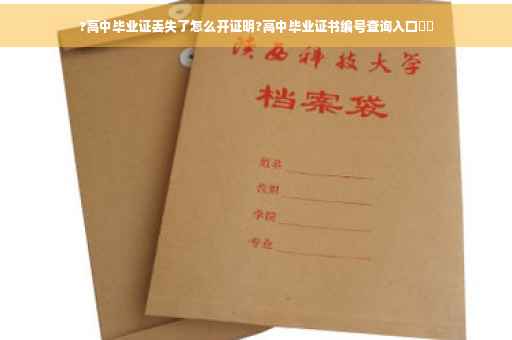 ?高中毕业证丢失了怎么开证明?高中毕业证书编号查询入口
陕西科技大学
档案袋
姓名
学院
专业